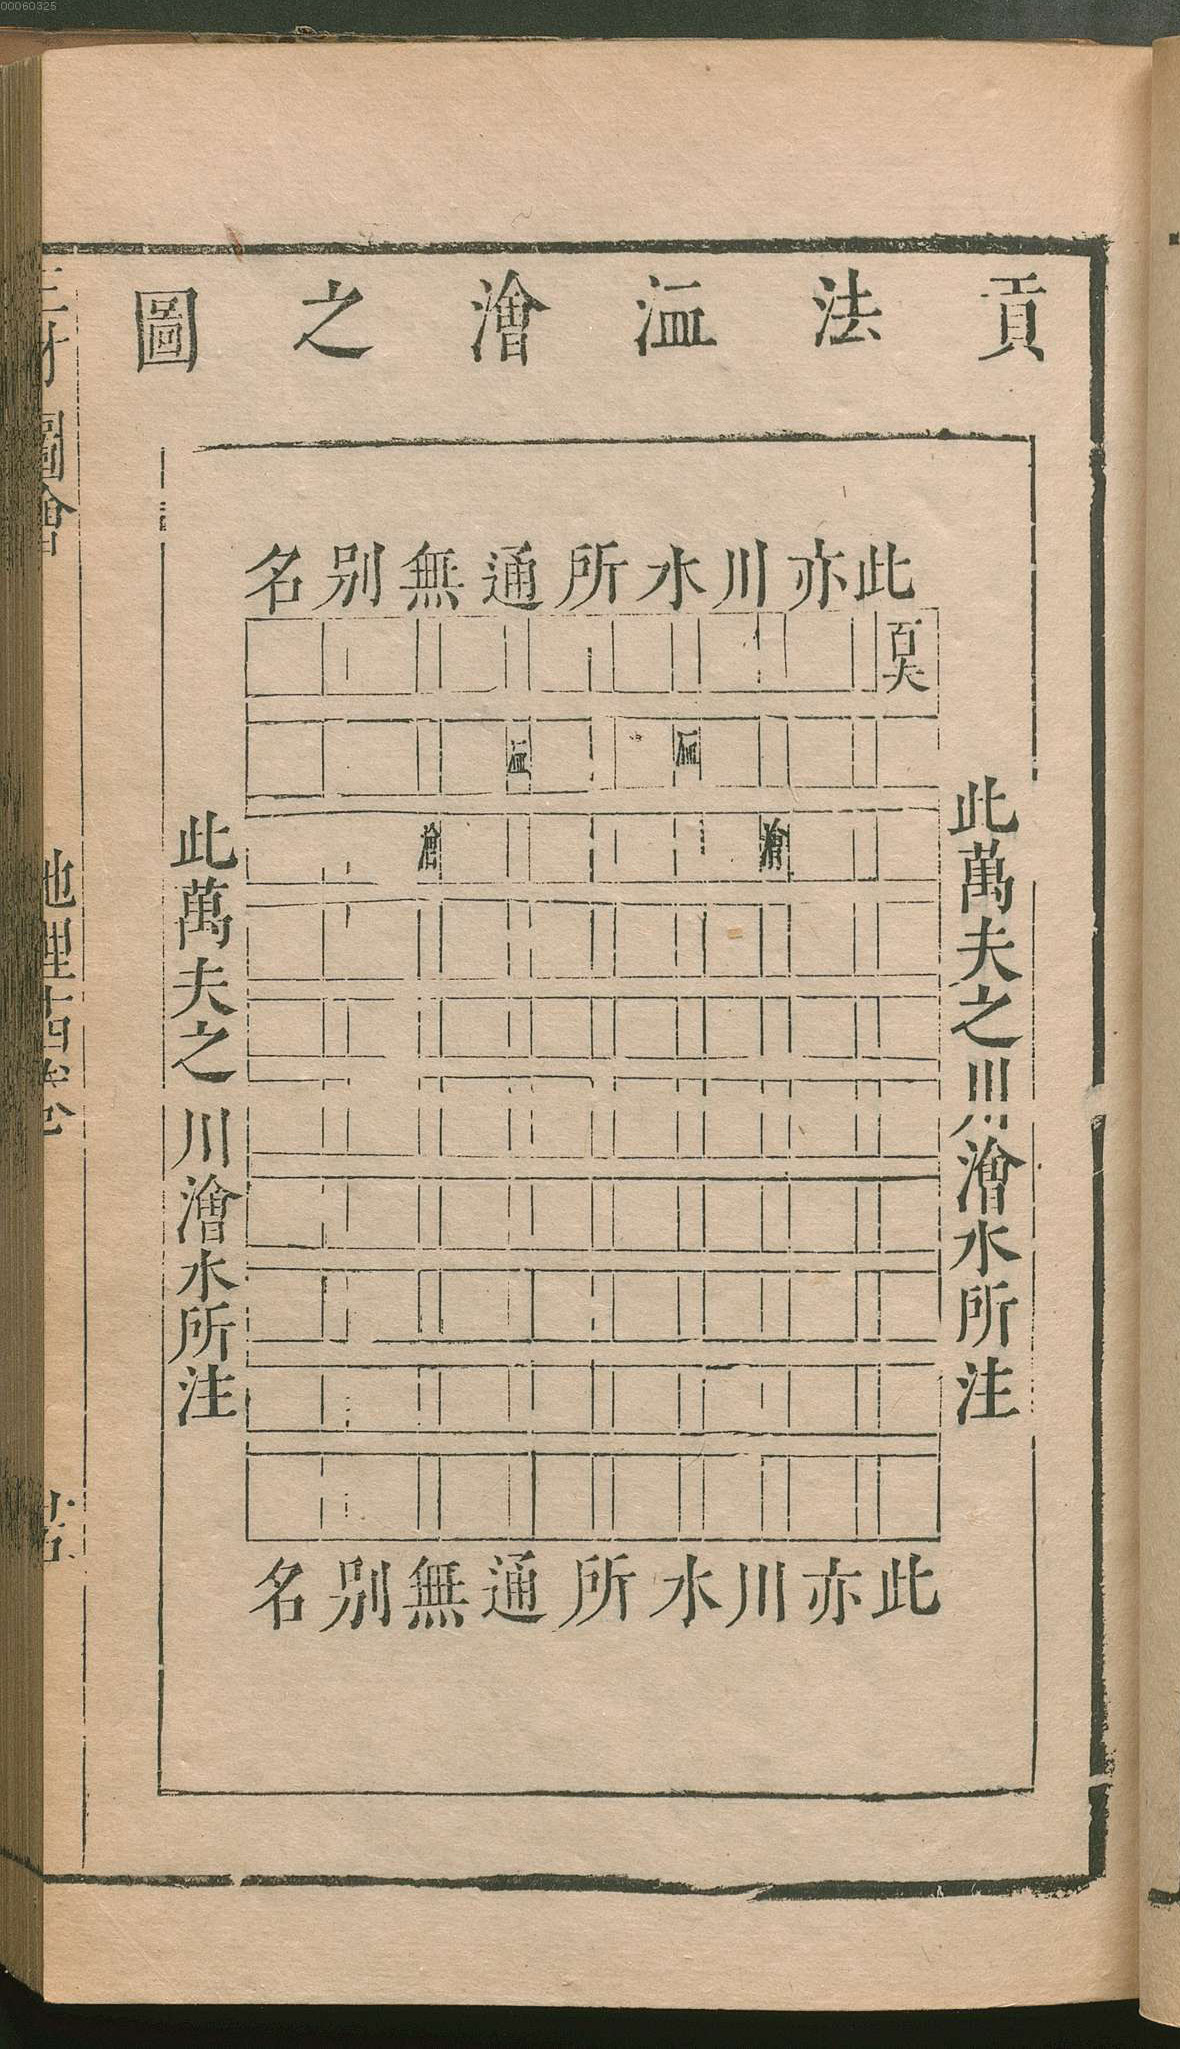 00060325
貢法洫澮之圖
此亦川水所通無别名
百夫
洫
洫
澮
澮
此萬夫之川澮水所注
此萬夫之川澮水所注
此亦川水所通無别名
三才圖會
地理十四卷